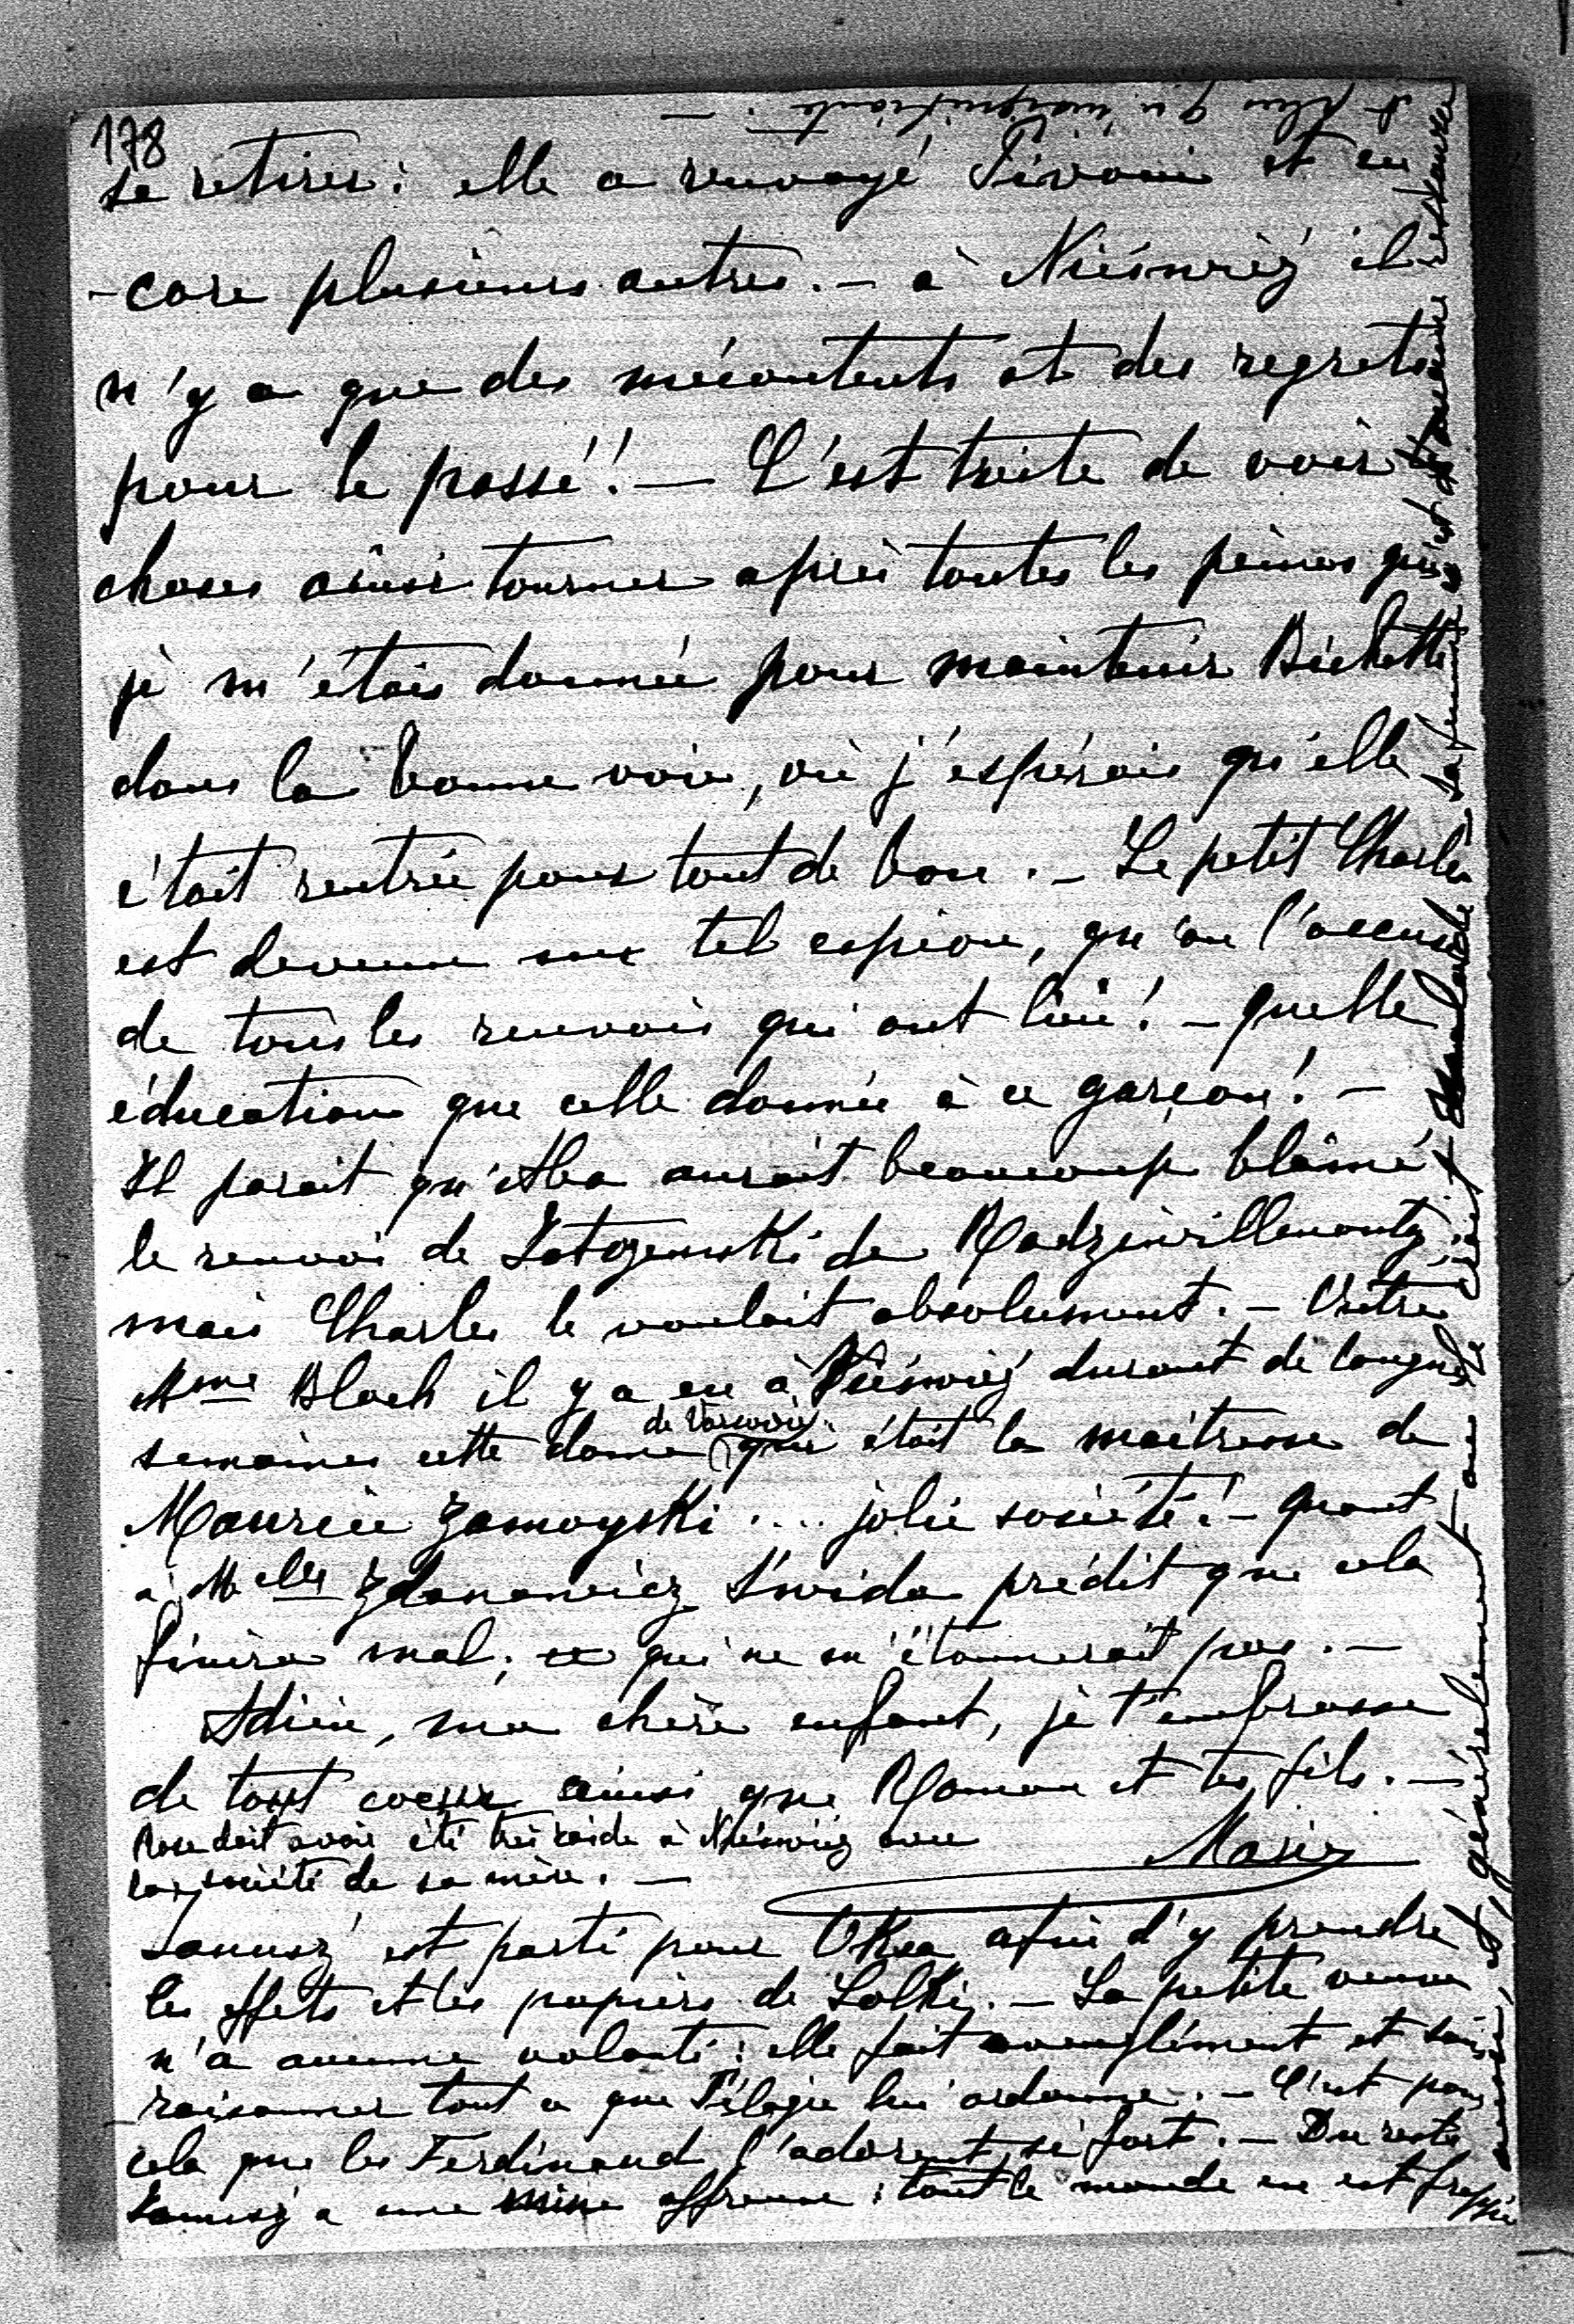 178
se retirer : elle a renvoyé Pivoni et en
-core plusieurs autres. — à Nieśwież il
n'y a que des mécontents et des regrets
pour le passé! — C'est triste de voir les
choses ainsi tourner après toutes les peines que
je m'étais donnée pour maintenir Bichette
dans la bonne voie, où j'espérais qu'elle
était rentrée pour tout de bon. — Le petit Charles
est devenu un tel espion, qu'on l'accuse
de tous les renvois qui ont lieu! — quelle
éducation que celle donnée à ce garçon! —
Il parait qu'Aba aurait beaucoup blâmé
le renvoi de de Radziwillmonty,
mais Charles le voulait absolument. — Outre
Mme Bloch il y a eu à Nieśwież durant de longues
semaines cette dame (de Varsovie) qui était la maitresse de
Maurice Zamoyski .... jolie société! — quant
à Melles Zdanowicz Świda prédit que cela
finira mal; ce qui ne m'étonnerait pas. —
Adieu, ma chère enfant, je t'embrasse
de tout coeur ainsi que Roman et tes fils. —
Rose doit avoir été très raide à Nieśwież avec
la société de sa mère. —
Marie
Janusz est parti pour afin d'y prendre
les effets et les papiers de — La petite veuve
n'a aucune volonté : elle fait aveuglément et sans
raisonner tout ce que Pélagie lui ordonne. — C'est pour
cela que les Ferdinand l'adorent si fort. — Du reste
Janusz a une mine affreuse : tout le monde en est frappé
et généralement on le croit
malade sa femme
et plus qu'inquiétante. —